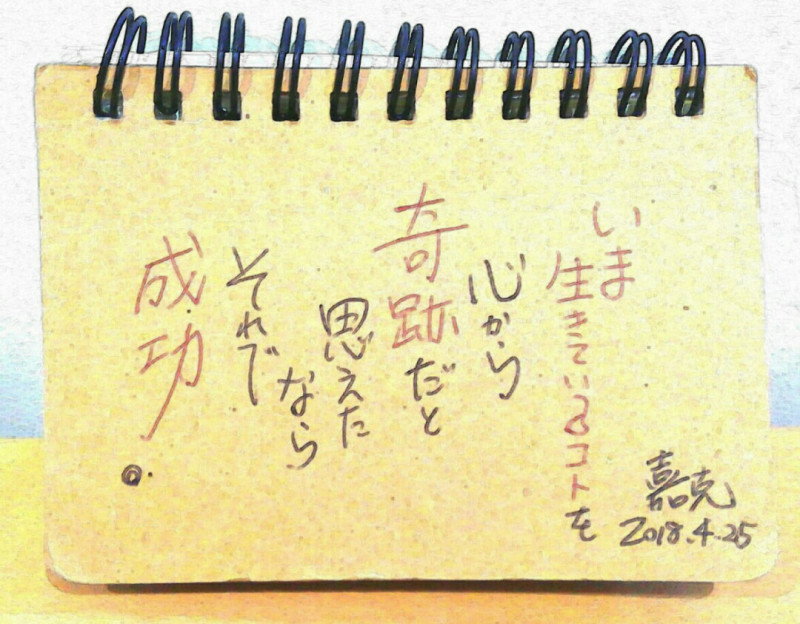 いま
生きているコトを
心から
奇跡だと
思えた
なら
それで
成功
嘉克
2018.4.25